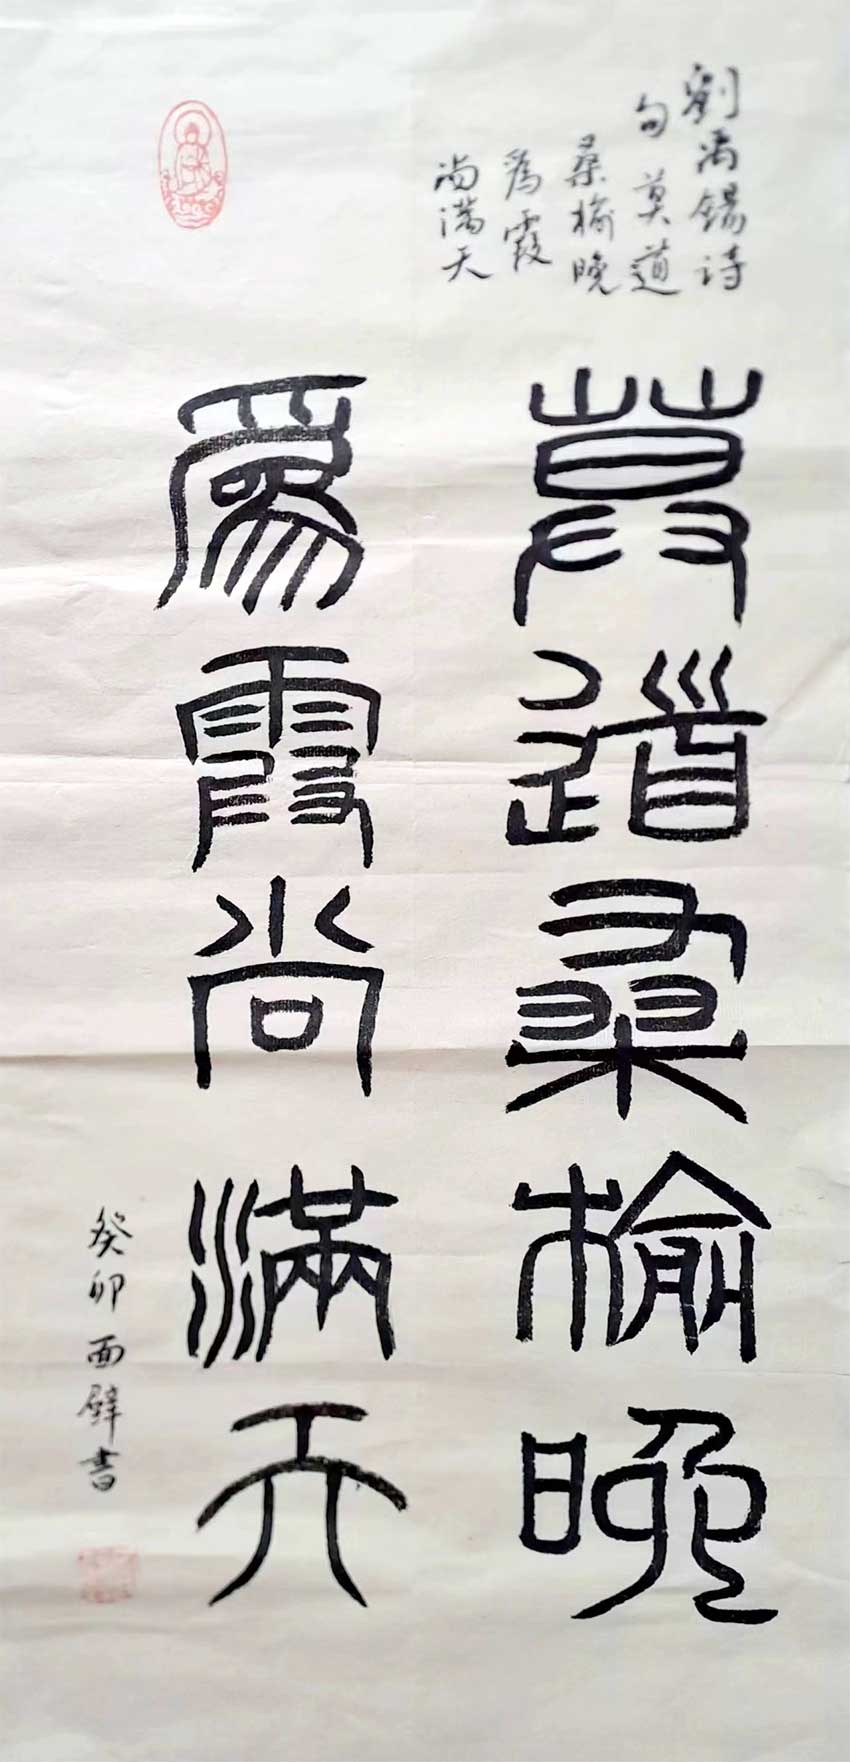 劉禹錫诗
句莫道
桑榆晚
為霞
尚满天
莫道桑榆晚
爲霞尚滿天
癸卯面壁書